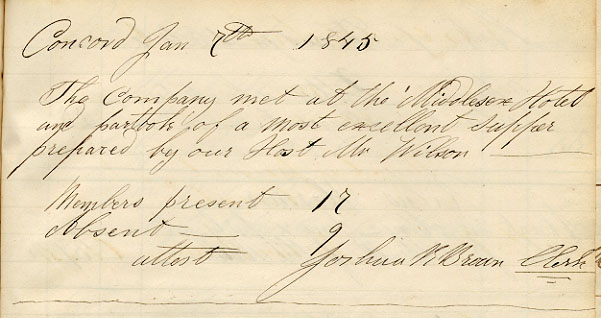 Concord Jan 7th 1845
The Company met at the "Middlesex Hotel
and partok" of a most excellent supper
prepared by our Host Mr Wilson —
Members present 17
Absent — 9
attest Joshua R Brown Clerk